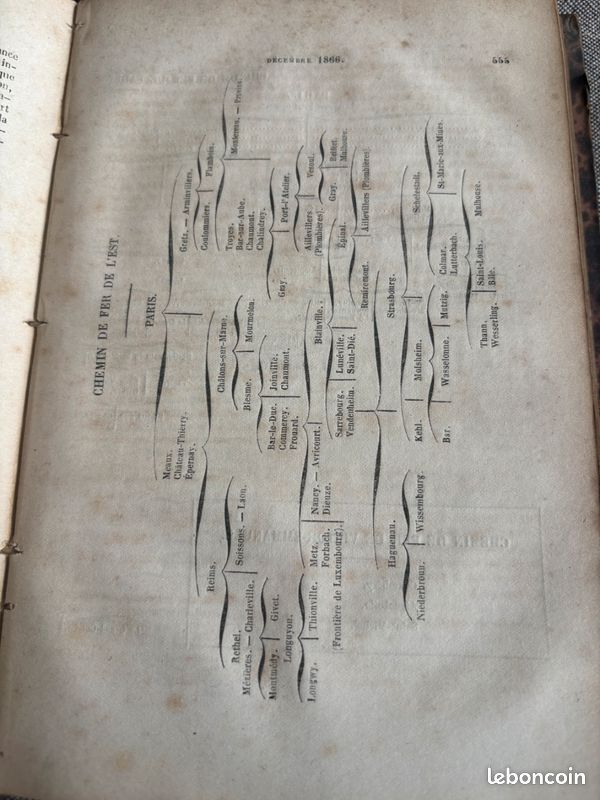 nce
in-
que
on,
a-
rt
la
DÉCEMBRE 1866.
555
CHEMIN DE FER DE L'EST.
PARIS.
Meaux.
Château-Thierry.
Épernay.
Gretz. — Armainvilliers.
Coulommiers.
Flamboin.
Reims.
Châlons-sur-Marne.
Troyes.
Bar-sur-Aube.
Chaumont.
Chalindrey.
Soissons. — Laon.
Blesme.
Mourmelon.
Rethel.
Mézières. — Charleville.
Bar-le-Duc.
Commercy.
Frouard.
Joinville.
Chaumont.
Gray.
Port-l'Atelier.
Montmédy.
Givet.
Longuyon.
Nancy. — Avricourt.
Dieuze.
Blainville.
Aillevillers
(Plombières).
Vesoul.
Longwy.
Thionville.
Metz.
Forbach.
Gray.
Belfort.
Mulhouse.
(Frontière de Luxembourg).
Sarrebourg.
Vendenheim.
Lunéville.
Saint-Dié.
Épinal.
Remiremont.
Aillevillers (Plombières).
Haguenau.
Strasbourg.
Niederbronn.
Wissembourg.
Kehl.
Molsheim.
Schelestadt.
Bar.
Wasselonne.
Mutzig.
Colmar.
Lutterbach.
St-Marie-aux-Mines.
Thann.
Wesserling.
Saint-Louis.
Bâle.
Mulhouse.
leboncoin